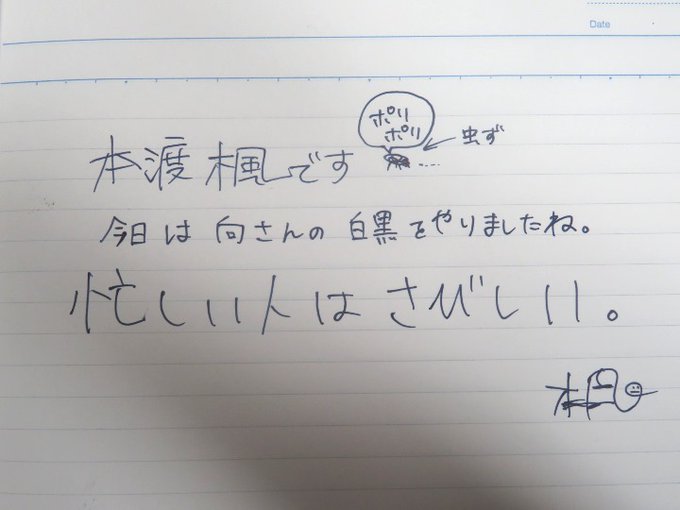 Date
ポリ
ポリ
虫ず
本渡楓です
今日は向さんの白黒をやりましたね。
忙しい人はさびしい。
楓